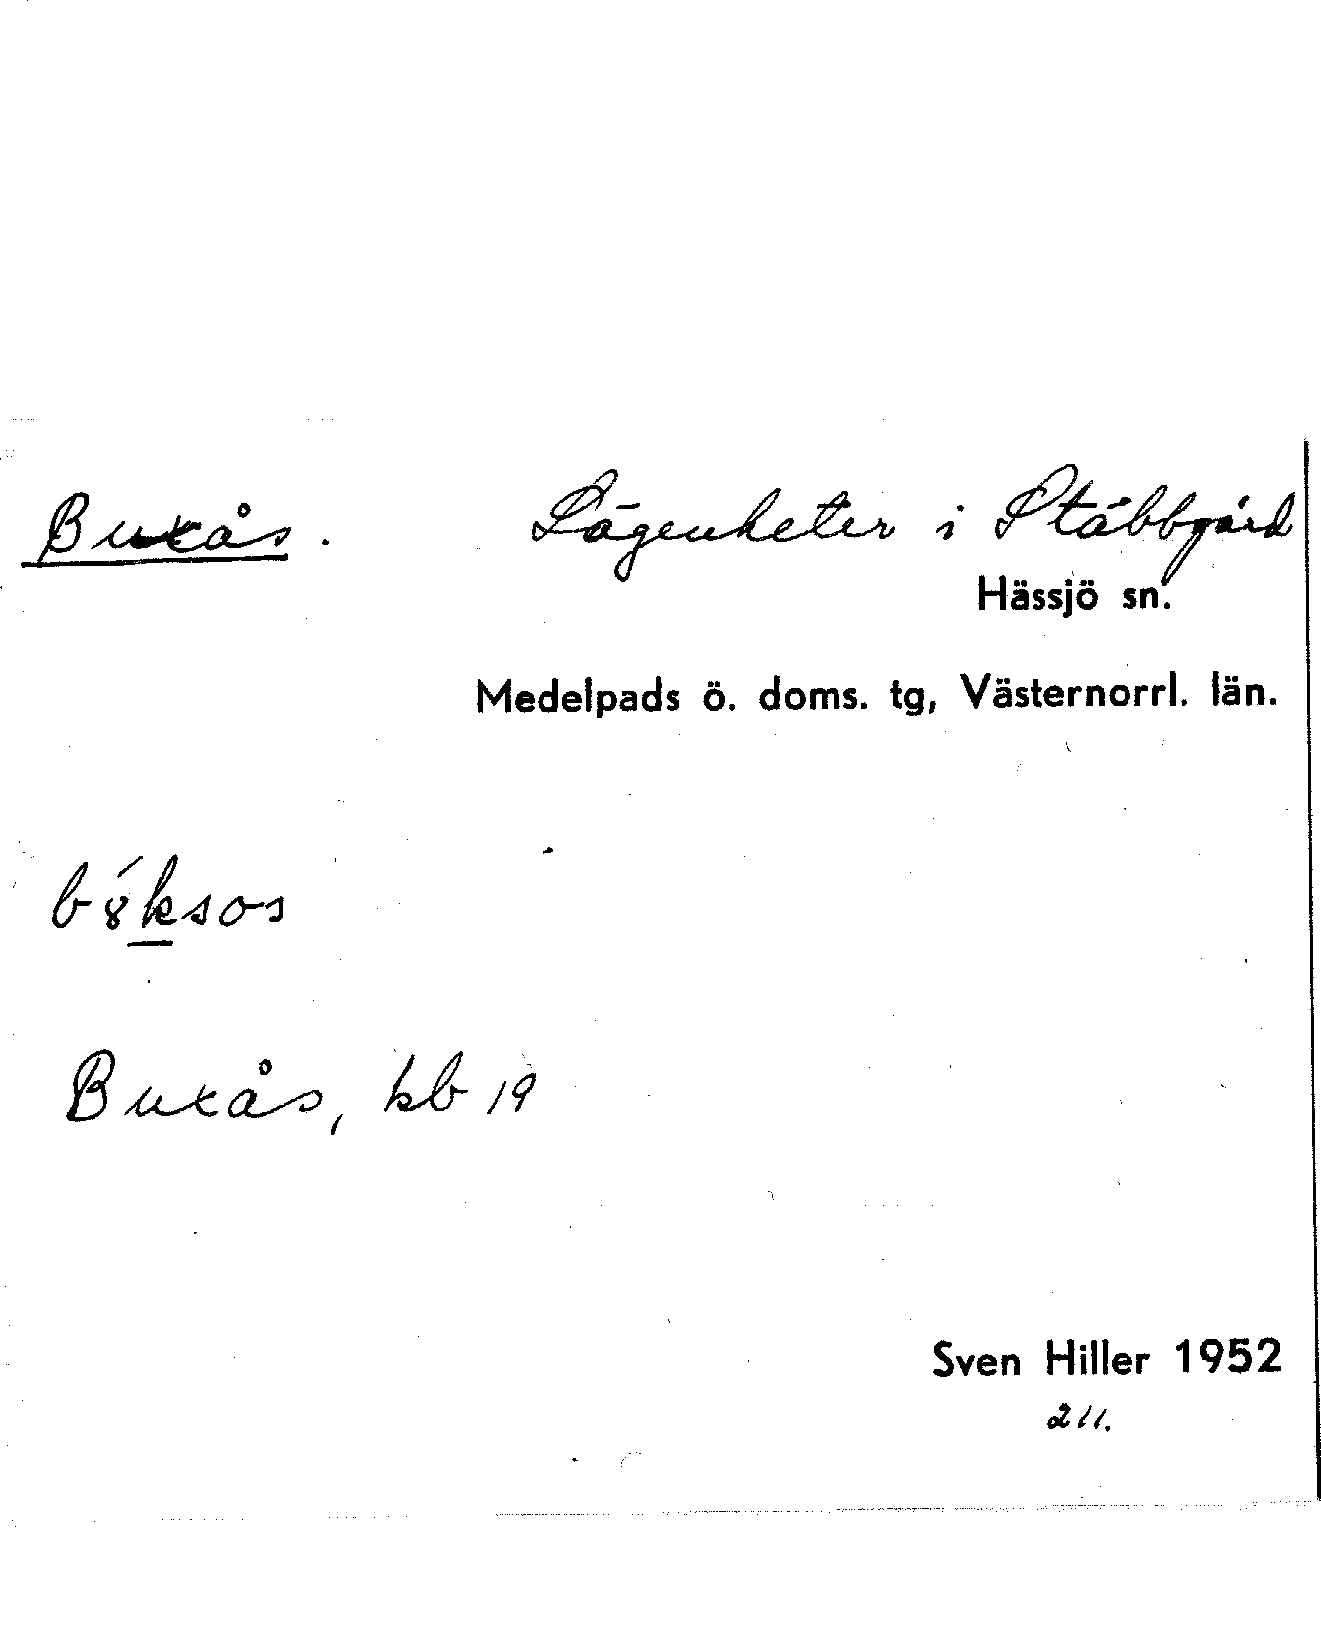 Buxås. Lägenheter i Stäbbgård
Hässjö sn.
Medelpads ö. doms. tg, Västernorrl. län.
bɣ́ksos
Buxås, kb 19
Sven Hiller 1952
211.